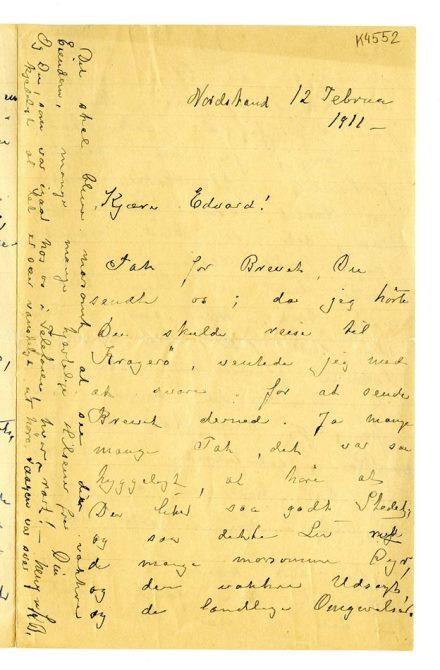 K4552
Nordstrand 12 Februar
1911 —
Kjære Edvard!
Tak for Brevet, Du
sendte os; da jeg hörte
Du skulde reise til
Kragerö, ventede jeg med
at svare for at sende
Brevet derned. Ja mange
mange Tak, det var saa
hyggeligt, at höre at
Du liker saa godt Stedet,
og saa dette Liv med
de mange morsomme Dyr,
og den vakkre Udsigt,
og de landlige Omgivelser.
Det skal blive morsomt at see din vakkre
Eiendom, mange mange hjertelige Hilsener fra Din
Og Du som var igaar hos os i
hyggeligt at